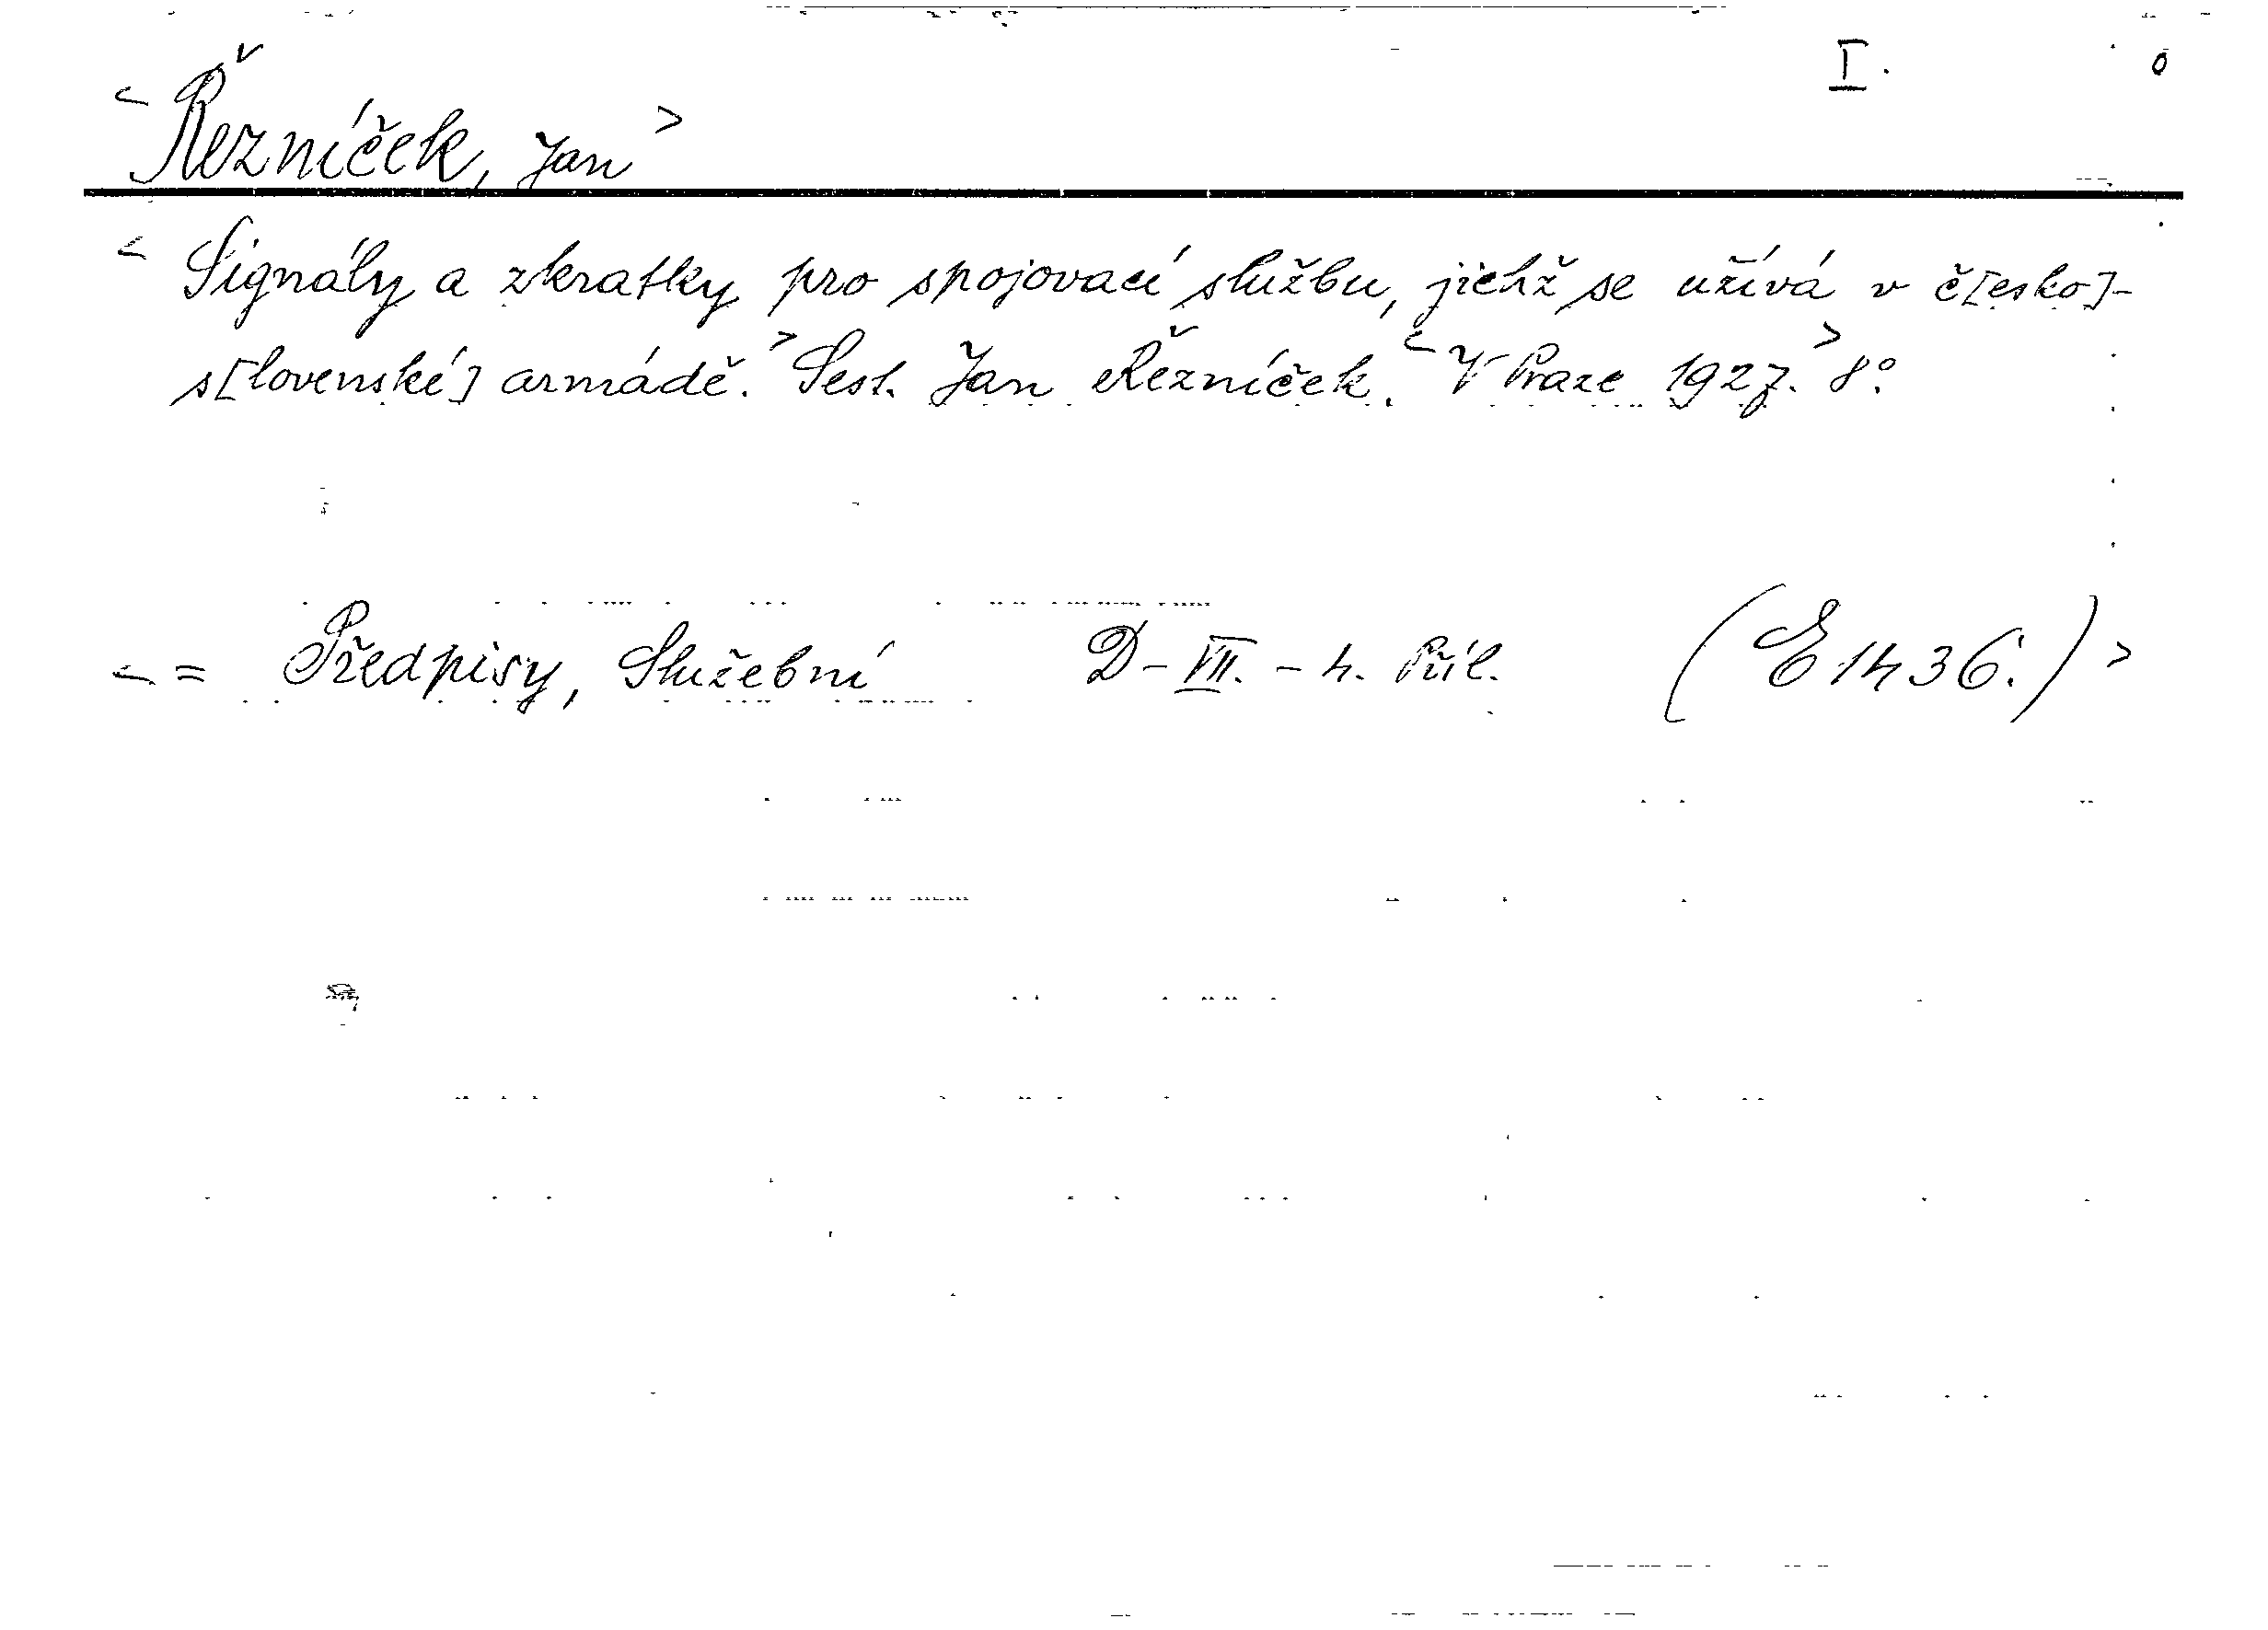 I. 0
< Řezníček, Jan >
< Signály a zkratky pro spojovací službu, jichž se užívá v č[esko]-
s[lovenské] armádě. > Sest. Jan Řezníček. < V Praze 1927. > 8°.
< = Předpisy, Služební D-VII.-4. Příl. (E 1436.) >